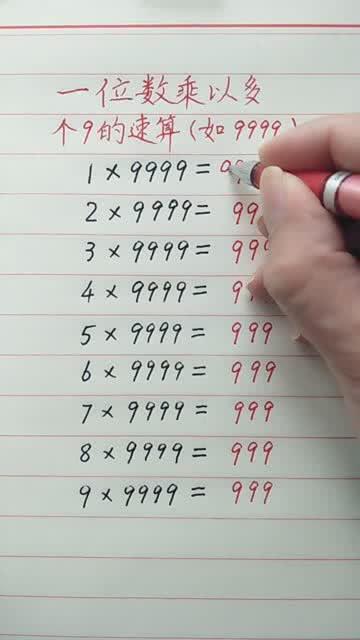 一位数乘以多
个9的速算(如9999)
1×9999=99
2×9999= 99
3×9999= 999
4×9999= 9
5×9999= 999
6×9999= 999
7×9999= 999
8×9999= 999
9×9999= 999